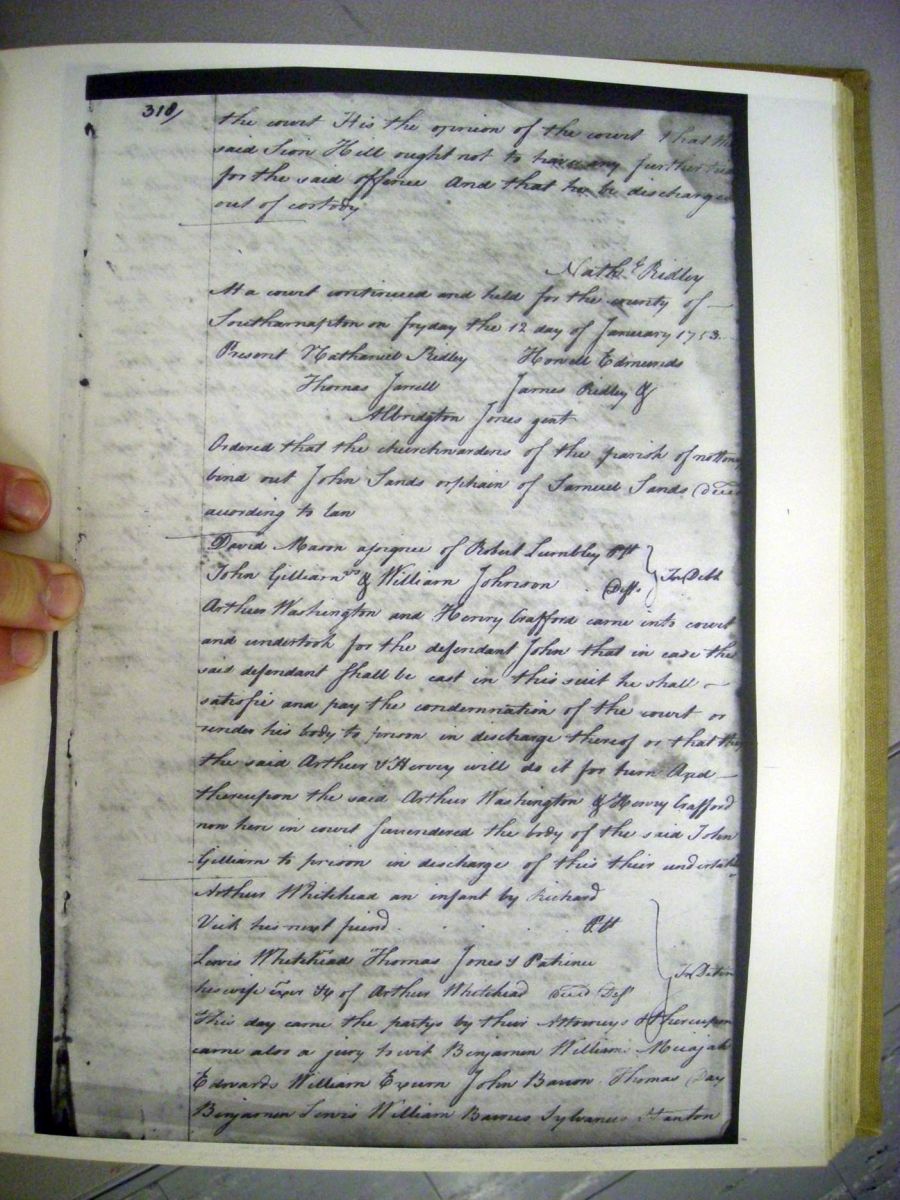 318/
the court It is the opinion of the court that the
said Sion Hill ought not to have any further
for the said offence And that he be discharged
out of custody
Nathl Ridley
At a court continued and held for the county of
Southampton on fryday the 12 day of January 1753
Present Nathaniel Ridley Howell Edmunds
Thomas Jarrell James Ridley &
Albridgton Jones gent
Ordered that the churchwardens of the parish of nottoway
bind out John Sands orphain of Samuel Sands decd
according to law
David Mason assignee of Robert Lumbley Plt
John Gilliam & William Johnson Defts
In Debt
Arthur Washington and Henry Crafford came into court
and undertook for the defendant John that in case the
said defendant shall be cast in this suit he shall
satisfie and pay the condemnation of the court or
render his body to prison in discharge thereof or that they
the said Arthur & Henry will do it for him And
thereupon the said Arthur Washington & Henry Crafford
now here in court surrendered the body of the said John
Gilliam to prison in discharge of this their
Arthur Whitehead an infant by Richard
Vick his next friend Plt
Lewis Whitehead Thomas Jones & Patience
his wife Exer &c of Arthur Whitehead decd Def
In
This day came the partys by their Attorneys & thereupon
came also a jury to wit Benjamin William Micajah
Edwards William Exum John Barron Thomas Day
Benjamin Lewis William Barnes Sylvanus Stanton